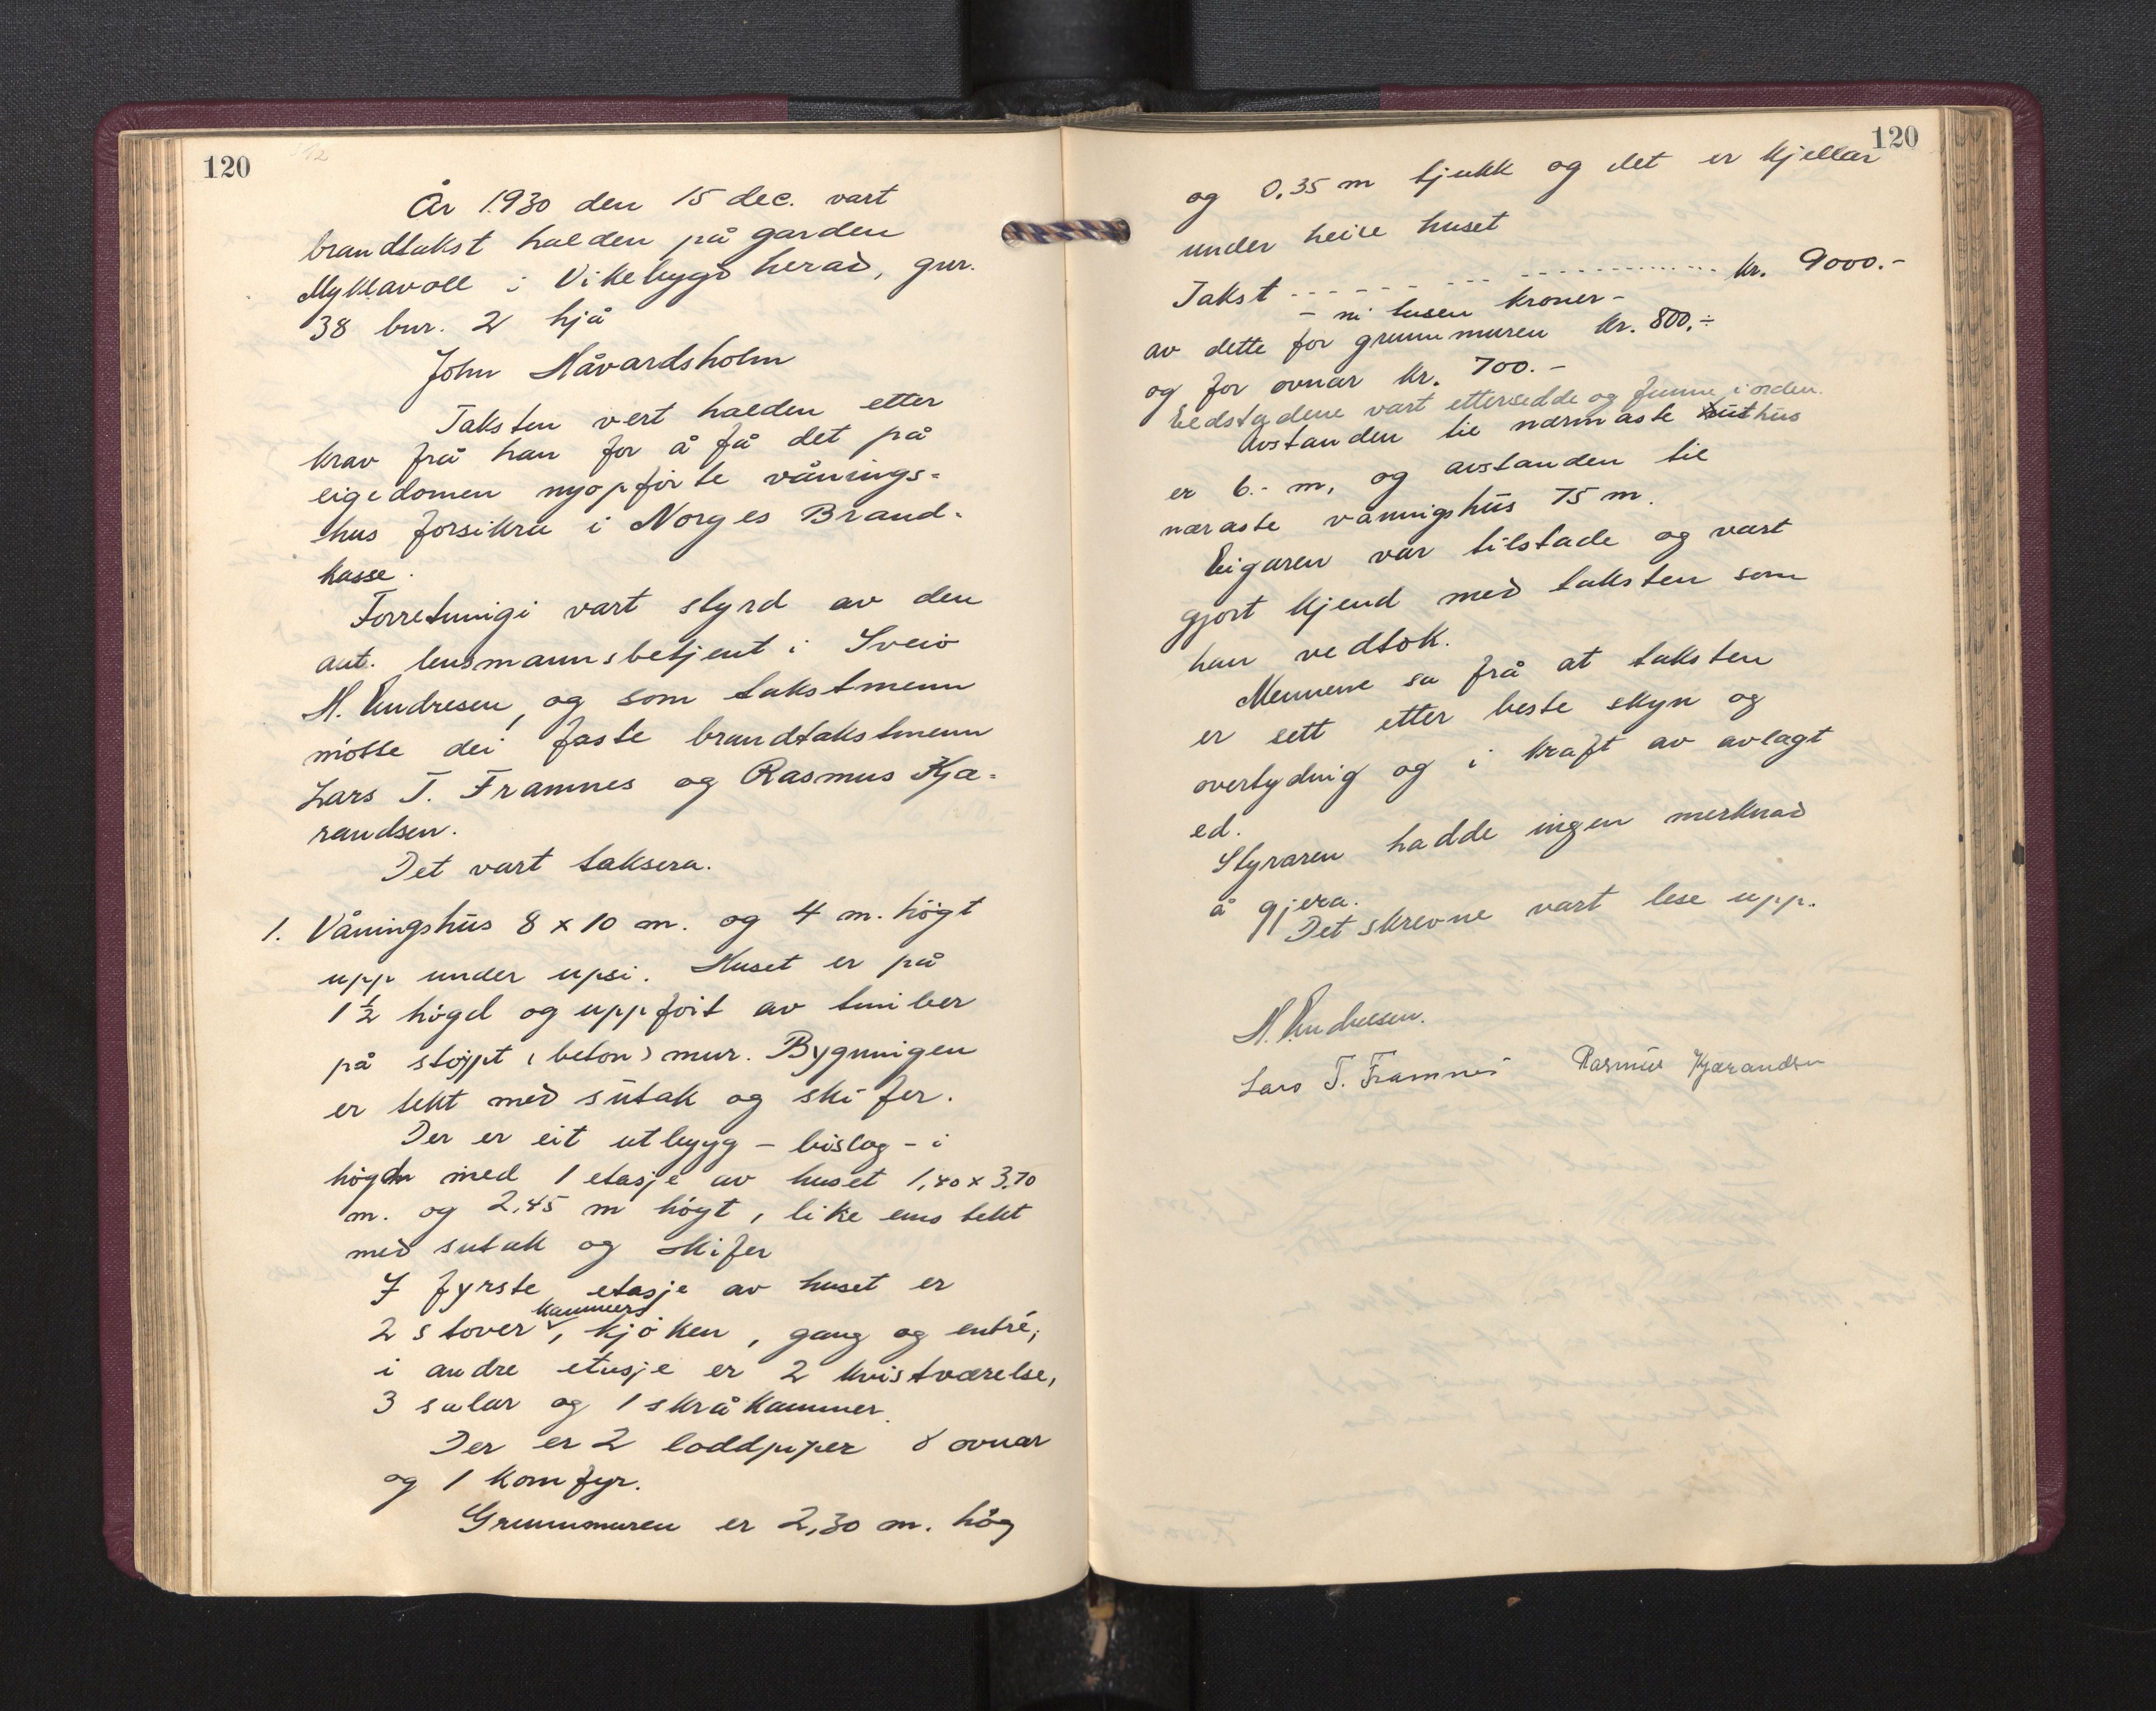 120
År 1930 den 15 dec. vart
brandtakst halden på garden
Myklavoll i Vikebygd herad, gnr.
38 bnr. 2 hjå
John Håvardsholm
Taksten vert halden etter
krav frå han for å få det på
eigedomen nyopførte vånings-
hus forsikra i Norges Brand-
kasse.
Forretningi vart styrd av den
aut. lensmannsbetjent i Sveio
N. Andresen, og som takstmenn
møtte dei faste brandtakstmenn
Lars T. Framnes og Rasmus Kjæ-
randsen.
Det vart taksera.
1. Våningshus 8 x 10 m. og 4 m. høgt
upp under upsi. Huset er på
1 ½ høgd og uppført av timber
på støypt (beton) mur. Bygningen
er tekt med sutak og skifer.
Der er eit utbygg - bislag - i
høgda med 1 etasje av huset 1,40 x 3,70
m. og 2,45 m høgt, like eins tekt
med sutak og skifer
I fyrste etasje av huset er
kammers
2 stover, kjøken, gang og entré,
i andre etasje er 2 kvistværelse,
3 salar og 1 skråkammer.
Der er 2 loddpiper 8 ovnar
og 1 komfyr.
Grunnmuren er 2,30 m. høg
120
og 0,35 m tjukk og det er kjellar
under heile huset
Takst kr. 9000.-
- ni tusen kroner -
av dette for grunnmuren kr. 800,-
og for ovnar kr. 700.-
Eldstadene vart ettersedde og funne i orden.
Avstanden til nærmaste uthus
er 6.- m, og avstanden til
næraste våningshus 75 m.
Eigaren var tilstade og vart
gjort kjend med taksten som
han vedtok.
Mennene sa frå at taksten
er sett etter beste skyn og
overtydnig og i kraft av avlagt
ed.
Styraren hadde ingen merknad
å gjera.
Det skrevne vart lese upp.
N. Andresen.
Lars T. Framnes Rasmus Kjærandsen